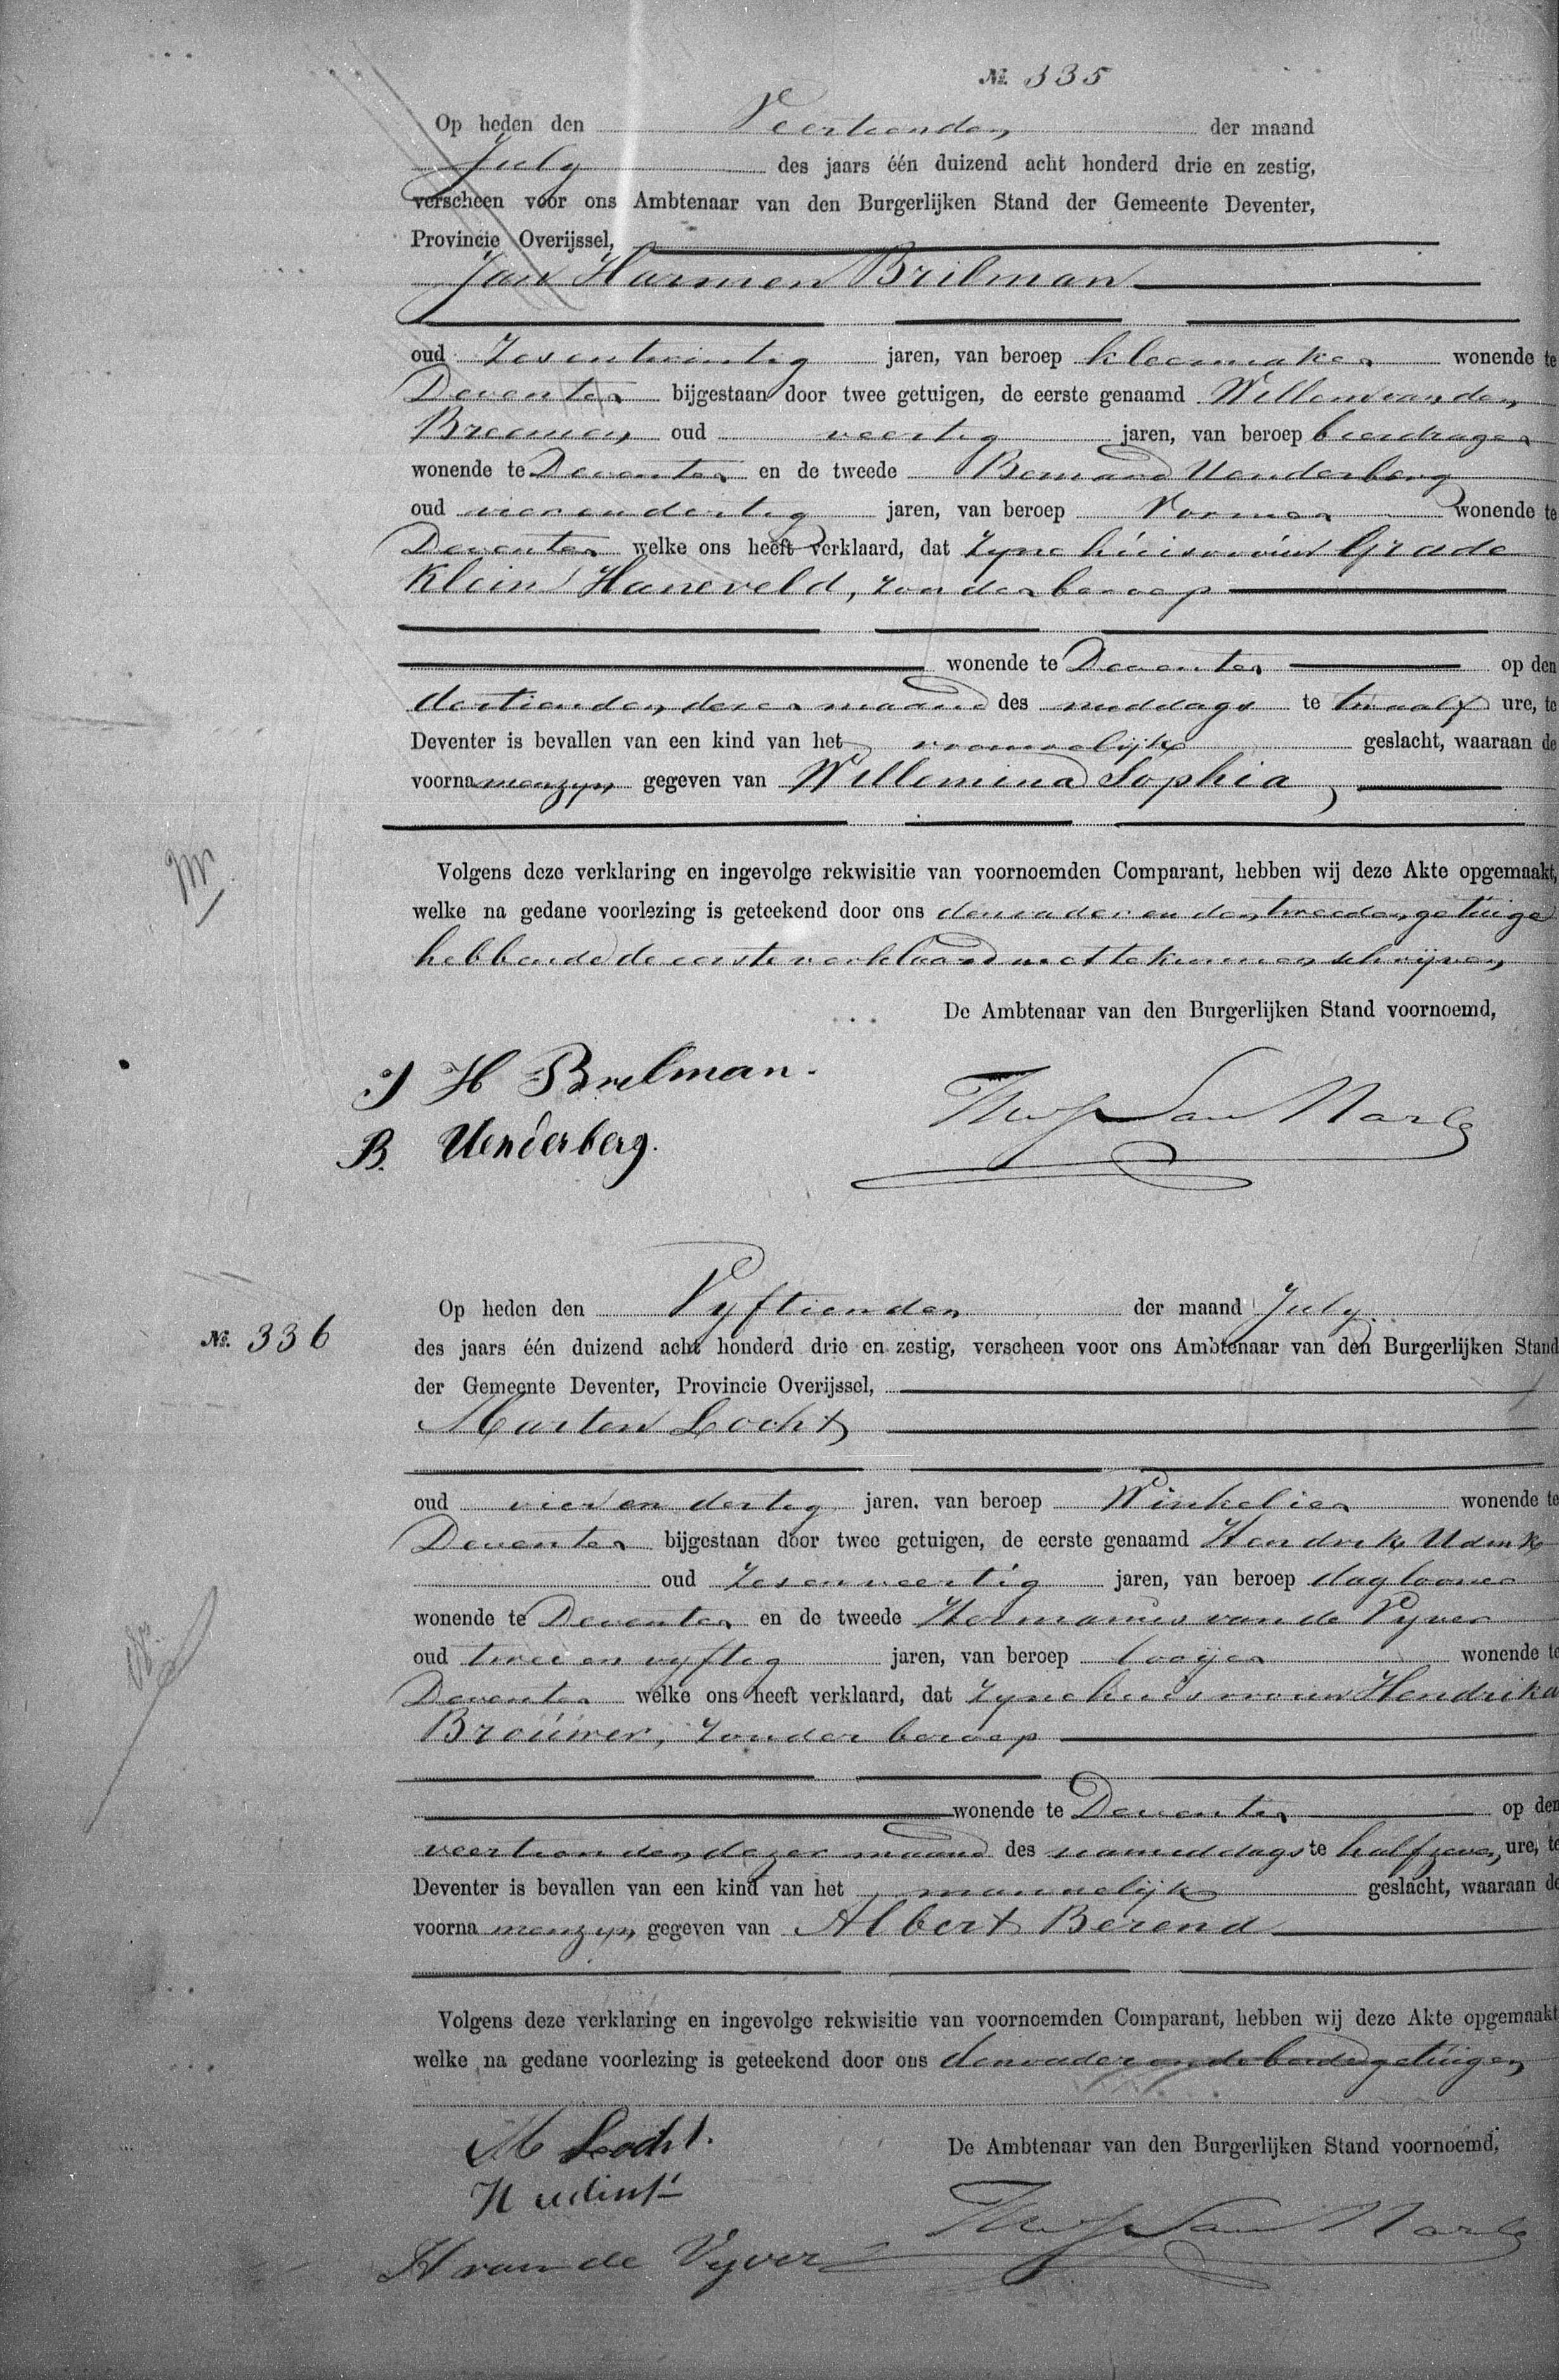 №. 335
Op heden den Veertienden der maand
July des jaars één duizend acht honderd drie en zestig,
verscheen voor ons Ambtenaar van den Burgerlijken Stand der Gemeente Deventer,
Provincie Overijssel,
Jan Harmen Brilman
oud Zesentwintig jaren, van beroep kleermaker wonende te
Deventer bijgestaan door twee getuigen, de eerste genaamd Willem van den
Breemen oud veertig jaren, van beroep
wonende te Deventer en de tweede Bernard Uenderberg
oud vierendertig jaren, van beroep Vormer wonende te
Deventer welke ons heeft verklaard, dat zyne huisvrouw Grade
Klein Haneveld, zonder beroep
wonende te Deventer op den
dertienden dezer maand des middags te twaalf ure, te
Deventer is bevallen van een kind van het vrouwelijk geslacht, waaraan de
voornamen zyn gegeven van Willemina Sophia,
Volgens deze verklaring en ingevolge rekwisitie van voornoemden Comparant, hebben wij deze Akte opgemaakt,
welke na gedane voorlezing is geteekend door ons den vader en den tweeden getuige
hebbende de eerste verklaard niet te kunnen schrijven
De Ambtenaar van den Burgerlijken Stand voornoemd,
J H Brilman.
B. Uenderberg.
van Marle
№. 336
Op heden den Vyftienden der maand July
des jaars één duizend acht honderd drie en zestig, verscheen voor ons Ambtenaar van den Burgerlijken Stand
der Gemeente Deventer, Provincie Overijssel,
Marten Locht
oud vier en dertig jaren, van beroep Winkelier wonende te
Deventer bijgestaan door twee getuigen, de eerste genaamd Hendrik Udink
oud Zesenveertig jaren, van beroep daglooner
wonende te Deventer en de tweede Hermanus van de Vyver
oud twee en vyftig jaren, van beroep looijer wonende te
Deventer welke ons heeft verklaard, dat zyne huisvrouw Hendrika
Brouwer, zonder beroep
wonende te Deventer op den
veertienden dezer maand des namiddags te half zeven ure, te
Deventer is bevallen van een kind van het mannelijk geslacht, waaraan de
voornamen zyn gegeven van Albert Berend
Volgens deze verklaring en ingevolge rekwisitie van voornoemden Comparant, hebben wij deze Akte opgemaakt
welke na gedane voorlezing is geteekend door ons den vader en de beide getuigen
De Ambtenaar van den Burgerlijken Stand voornoemd,
M Locht.
H udink
H van de Vyver
van Marle